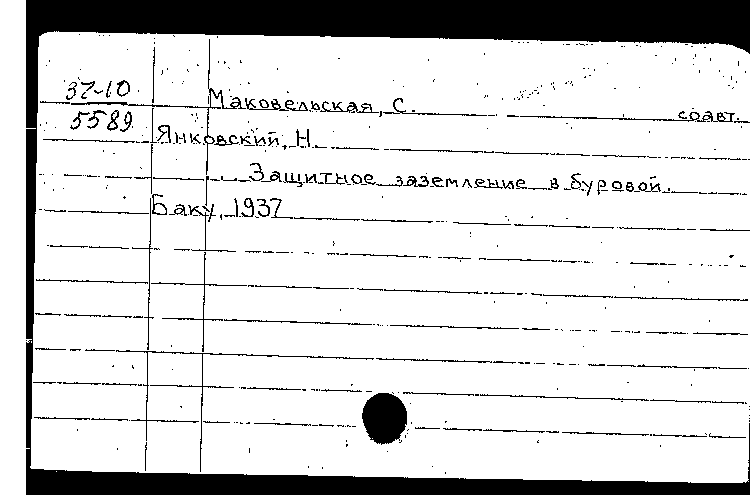 37-10
5589
Маковельская, С.
соавт.
Янковский, Н.
... Защитное заземление в буровой.
Баку, 1937